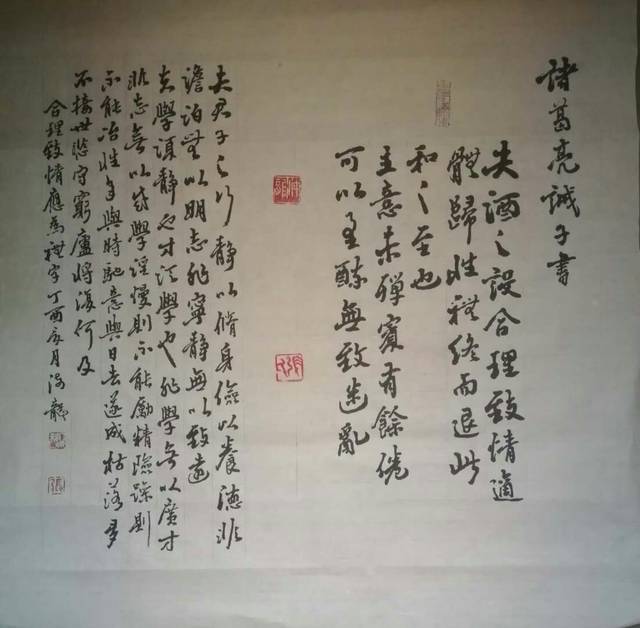 諸葛亮誡子書
夫酒之設合理致情適
體歸性禮終而退此
和之至也
主意未殫賓有餘倦
可以至醉無致迷亂
夫君子之行静以脩身儉以養德非
澹泊無以明志非寧静無以致遠
夫學須静也才須學也非學無以廣才
非志無以成學淫慢則不能勵精險躁則
不能冶性年與時馳意與日去遂成枯落多
不接世悲守窮廬將復何及
合理致情應為禮字丁酉亥月